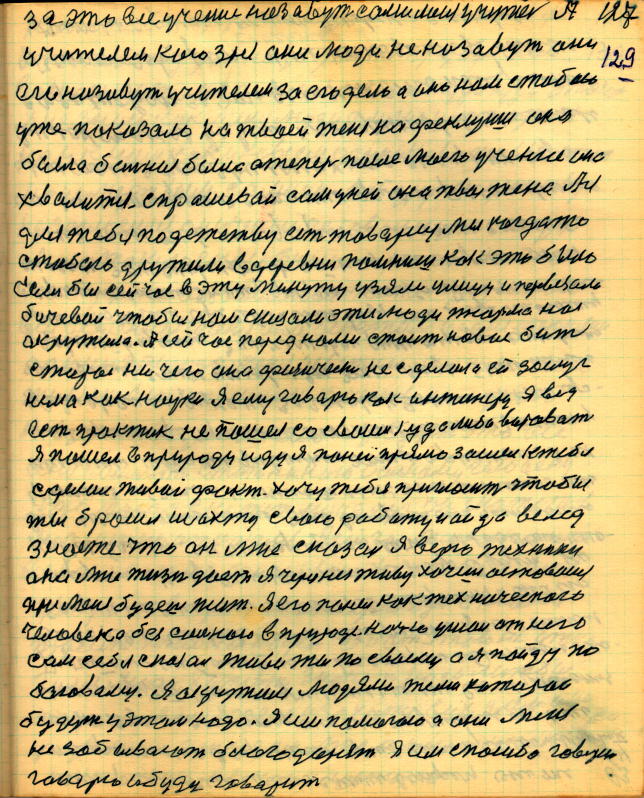 за это все учение назавут самим учител Я 127
учителем кого зря они люди не назавут они 129
его назовут учителем за его дело а оно нам с тобою
уже показало на твоей жене на феклуши она
была больная была а теперь после моего учения она
хвалится спрашевай сам у ней она твоя жена Ая
для тебя по детству ест товарищ мы когдато
с тобою дружили в деревни помниш как это было
Если бы сейчас в эту минуту узяли улицу и перевезали
бичевой чтобы нам сказали эти люди жарма нас
окружила. Я сейчас перед нами стоит новое быт
старое ни чего она физически не сделала ей
нема как науки Я ему говорю как инжинеру Я вед
ест практик не пошел со своим куда либо вароват
Я пошел в природу иду Я по ней прямо зашел к тебе
сделал живой факт. хочу тебя пригласит чтобы
ты бросил шахту свою работу и айда вслед
знаете что он мне сказал Я верю техники
она мне жизн дает Я через нея живу хочеш оставайся
при мене будеш жит. Я его понел как технического
человека без сильного в природе ночю ушол от него
сам себе сказал живи ты по своему а я пойду по
боговому. Я окружил людями теми которое
будут у этом надо. Я им помогаю а они мене
не забывают благодарят Я им спасибо говорил
говорю и буду говорит